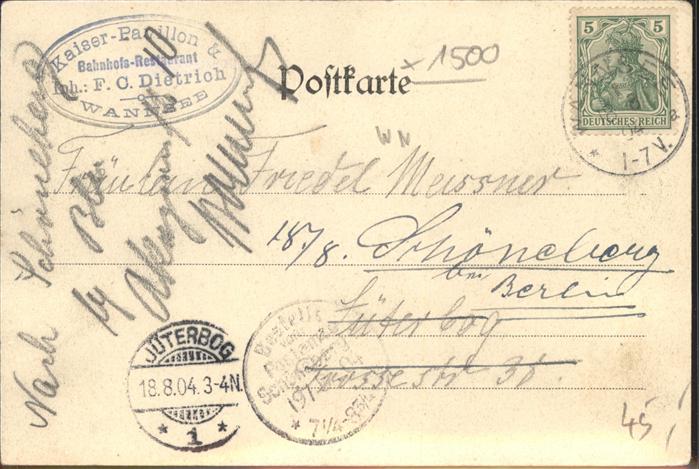 Kaiser-Pavillon &
Bahnhofs-Restaurant
Inh.: F. C. Dietrich
WANNSEE
Postkarte
x 1500
WN
5 5
DEUTSCHES REICH
WANNSEE
04
1-7 V.
Fräulein Friedel Meissner
18/8. Schöneberg
bei Berlin
Jüterbog
JÜTERBOG
18.8.04. 3-4N.
* 1 *
Bestellt
vom
Postamte
* 7 1/4-
Nach Schöneberg
b/ Bln
45,